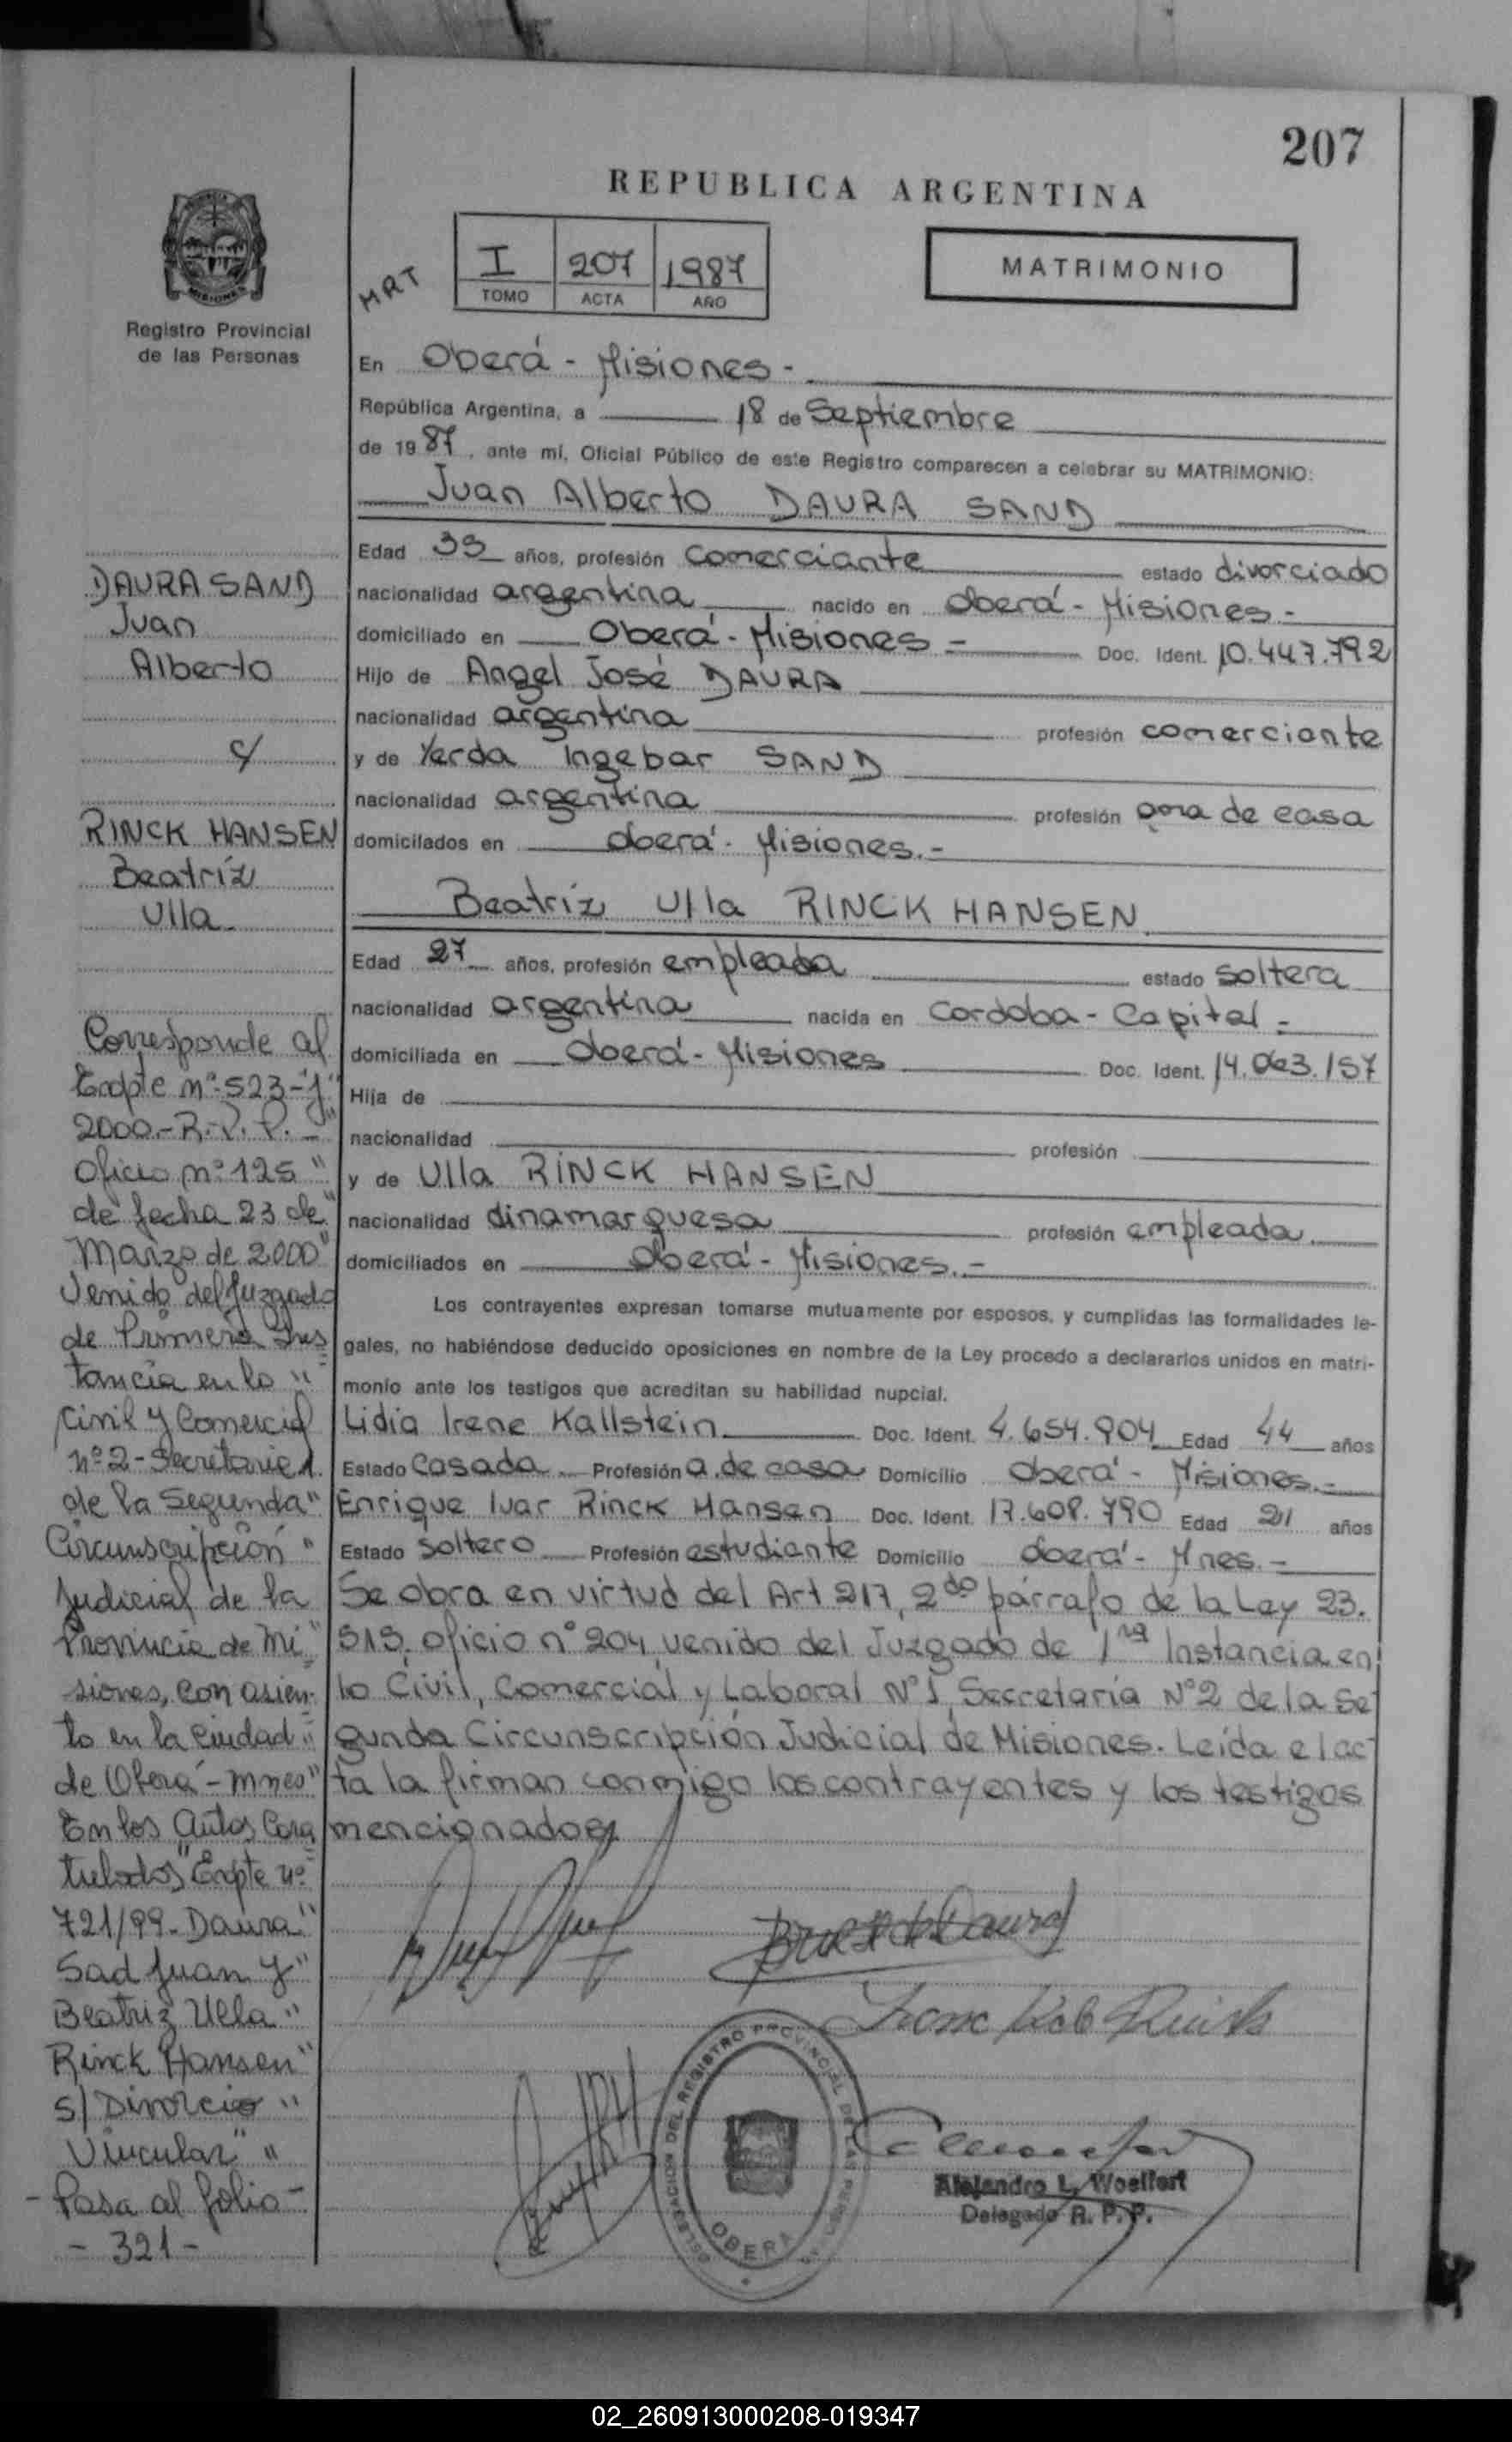 207
REPUBLICA ARGENTINA
MRT
I 207 1987
TOMO ACTA AÑO
MATRIMONIO
Registro Provincial
de las Personas
En Oberá - Misiones -
República Argentina, a 18 de Septiembre
de 1987, ante mí, Oficial Público de este Registro comparecen a celebrar su MATRIMONIO:
Juan Alberto DAURA SAND
Edad 33 años, profesión Comerciante estado divorciado
nacionalidad argentina nacido en Oberá - Misiones -
domiciliado en Oberá - Misiones - Doc. Ident. 10.447.792
Hijo de Angel José DAURA
nacionalidad argentina profesión comerciante
y de Yerda Ingebar SAND
nacionalidad argentina profesión ama de casa
domicilados en Oberá - Misiones.-
Beatríz Ulla RINCK HANSEN
Edad 27 años, profesión empleada estado soltera
nacionalidad argentina nacida en Cordoba - Capital -
domiciliada en Oberá - Misiones Doc. Ident. 14.063.157
Hija de
nacionalidad profesión
y de Ulla RINCK HANSEN
nacionalidad dinamarquesa profesión empleada
domiciliados en Oberá - Misiones.-
Los contrayentes expresan tomarse mutuamente por esposos, y cumplidas las formalidades le-
gales, no habiéndose deducido oposiciones en nombre de la Ley procedo a declararlos unidos en matri-
monio ante los testigos que acreditan su habilidad nupcial.
Lidia Irene Kallstein Doc. Ident. 4.654.904 Edad 44 años
Estado Casada Profesión a. de casa Domicilio Oberá - Misiones.-
Enrique Ivar Rinck Hansen Doc. Ident. 17.608.790 Edad 21 años
Estado soltero Profesión estudiante Domicilio Oberá - Mnes.-
Se obra en virtud del Art 217, 2do párrafo de la Ley 23.
515. oficio n° 204 venido del Juzgado de 1ra Instancia en
lo Civil, Comercial y Laboral N°1 Secretaría N°2 de la Se-
gunda Circunscripción Judicial de Misiones. Leída el ac-
ta la firman conmigo los contrayentes y los testigos
mencionados
DAURA SAND
Juan
Alberto
c/
RINCK HANSEN
Beatríz
Ulla
Corresponde al
Expte nº 523-"J"
2000.-R.P.P.-"
Oficio nº 125 "
de fecha 23 de "
Marzo de 2000"
Venido del Juzgado
de Primera Ins
tancia en lo "
Civil y Comercial
nº 2 - Secretaria 1.
de la Segunda "
Circunscripción "
Judicial de la
Provincia de Mi "
siones, con asien-
to en la ciudad "
de Oberá - Mnes "
En los Autos Cara
tulados "Expte nº
721/99 - Daura "
Sad Juan y "
Beatriz Ulla "
Rinck Hansen "
s/ Divorcio "
Vincular" "
- Pasa al folio -
- 321 -
DELEGACION DEL REGISTRO PROVINCIAL DE LAS PERSONAS
OBERA
Alejandro L. Woelfert
Delegado R. P. P.
02_260913000208-019347